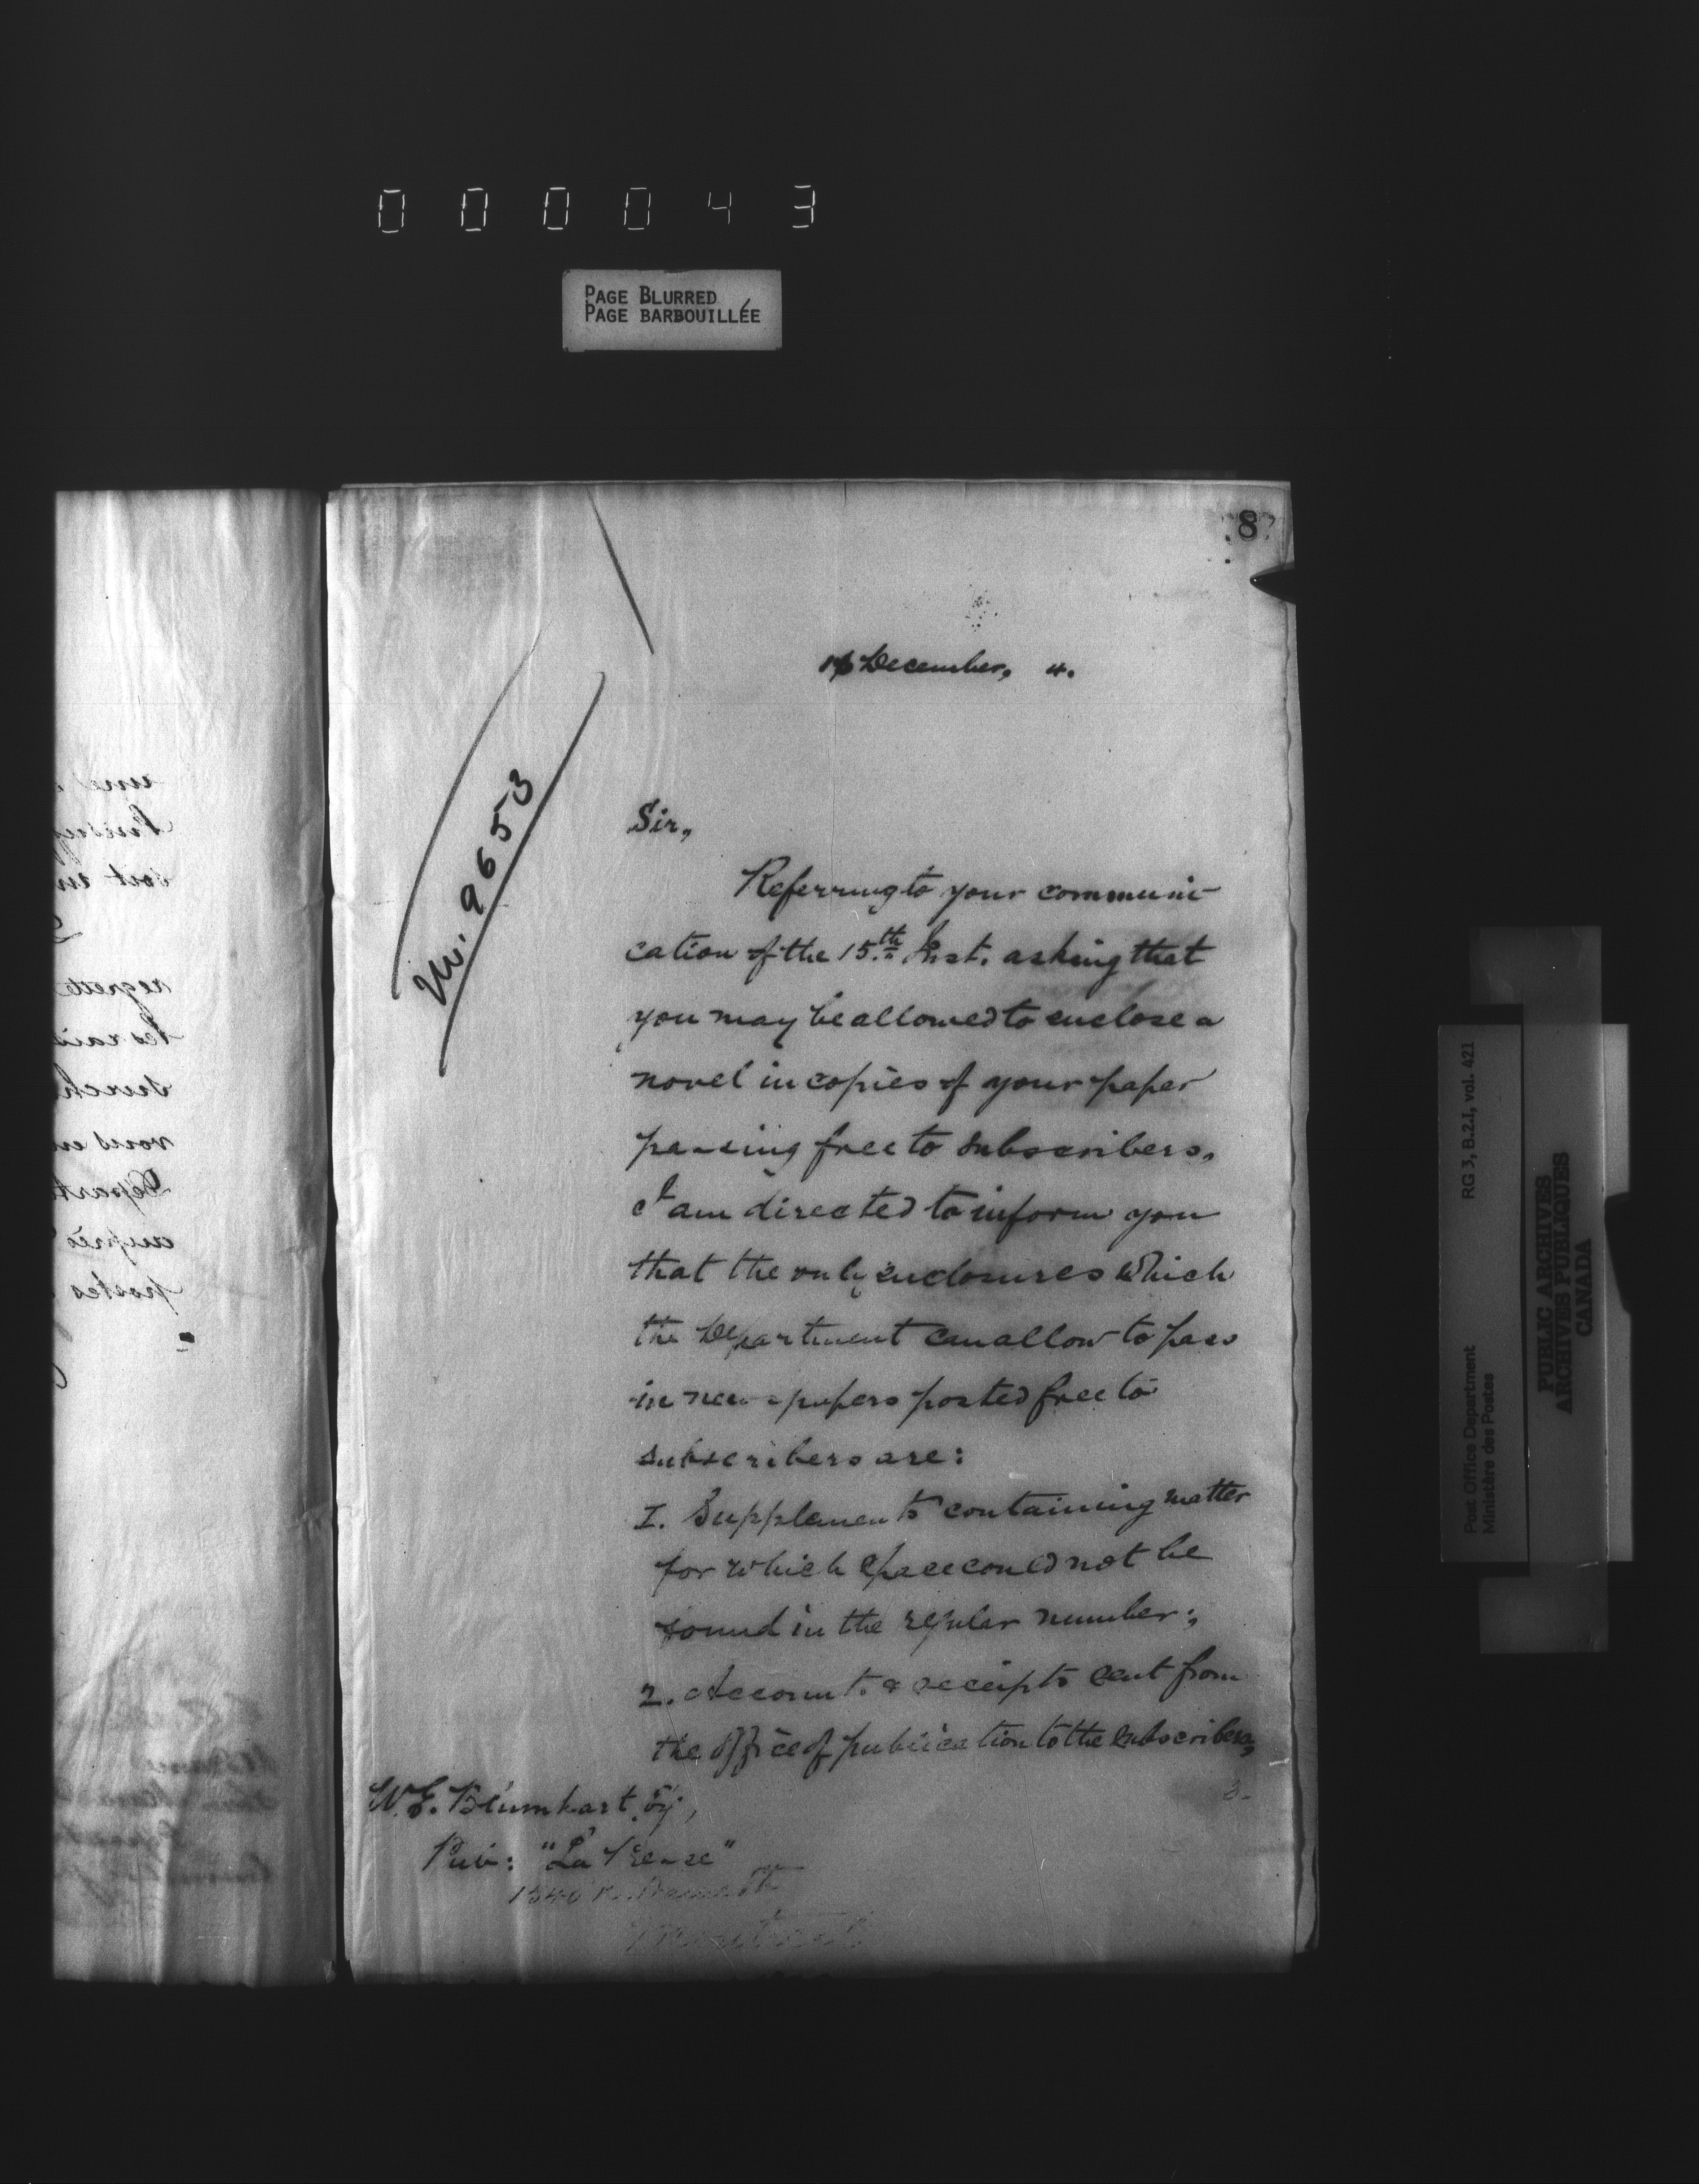 000043
PAGE BLURRED
PAGE BARBOUILLÉE
8
December, 4.
9653
Sir,
Referring to your communi-
cation of the 15.th Inst. asking that
you may be allowed to enclose a
novel in copies of your paper
passing free to subscribers,
I am directed to inform you
that the only enclosures which
the Department can allow to pass
in newspapers posted free to
subscribers are:
1. Supplements containing matter
for which space could not be
found in the regular number;
2. Accounts & receipts sent from
the office of publication to the subscribers,
3.
W. E. Blumhart, Esq,
Pub: "La Presse"
1540 N. Dame St
Montreal
RG 3, B.2.I, vol. 421
Post Office Department
Ministère des Postes
PUBLIC ARCHIVES
ARCHIVES PUBLIQUES
CANADA